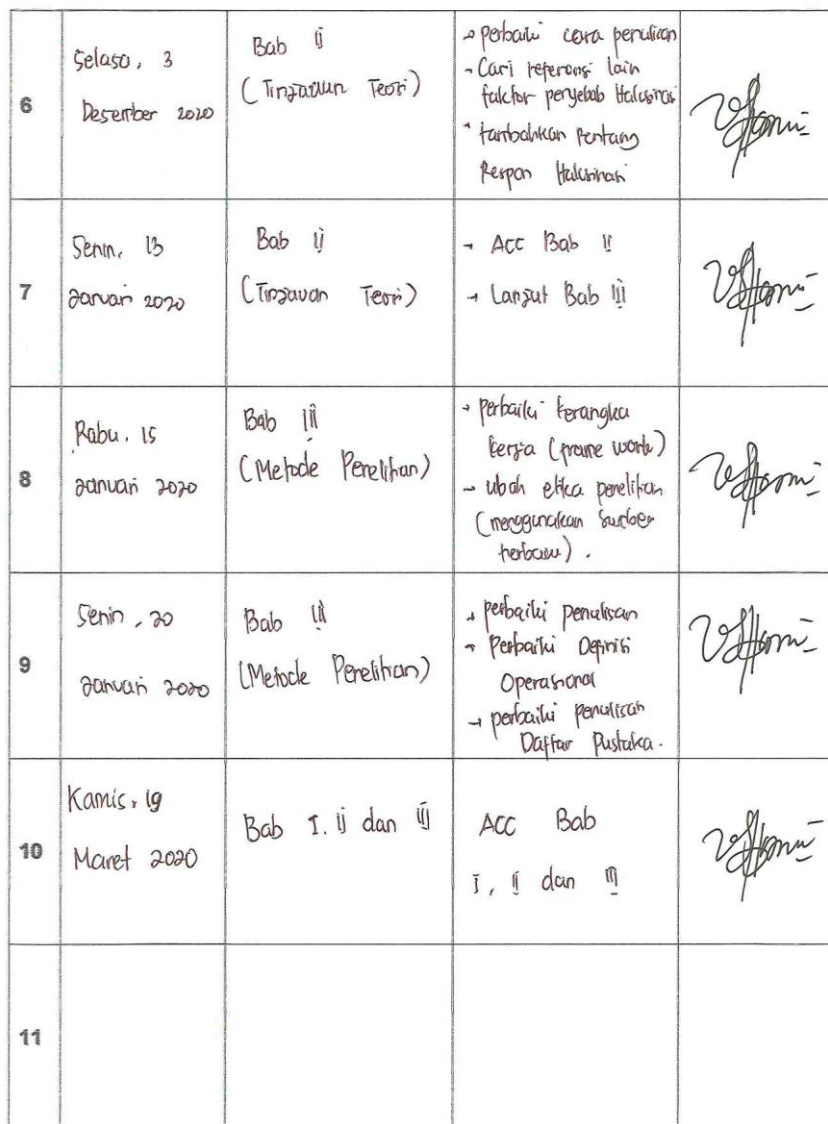 6
Selasa, 3
Desember 2020
Bab II
(Tinjauan Teori)
→ perbaiki cara penulisan
- Cari referensi lain
faktor penyebab Halusinasi
- tambahkan tentang
Respon Halusinasi
7
Senin, 13
Januari 2020
Bab II
(Tinjauan Teori)
→ ACC Bab II
→ Lanjut Bab III
8
Rabu, 15
Januari 2020
Bab III
(Metode Penelitian)
→ perbaiki kerangka
kerja (frame work)
→ ubah etika penelitian
(menggunakan sumber
terbaru).
9
Senin, 20
Januari 2020
Bab III
(Metode Penelitian)
→ perbaiki penulisan
→ Perbaiki Definisi
Operasional
→ perbaiki penulisan
Daftar Pustaka.
10
Kamis, 19
Maret 2020
Bab I. II dan III
ACC Bab
I, II dan III
11